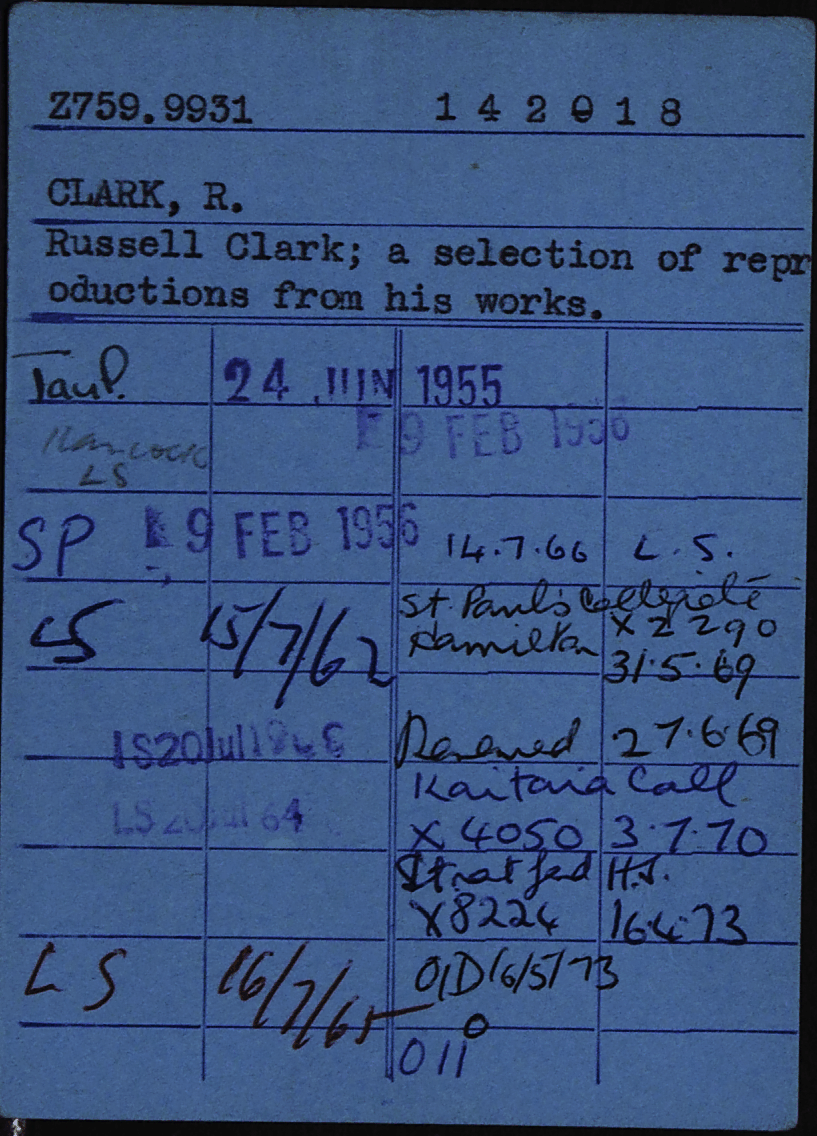 Z759.9931 142018
CLARK, R.
Russell Clark; a selection of repr
oductions from his works.
24 JUN 1955
9 FEB 1956
Hancock
LS
SP 9 FEB 1956
14.7.66 L.S.
LS 15/7/62
St. Paul's Collegiate
Hamilton X2290
31.5.69
LS20Jul
Renewed 27.6.69
Kaitaia Coll
LS 20 Jul 64
X 4050 3.7.70
Stratford H.S.
X8224 16.4.73
LS 16/7/65
O/D 16/5/73